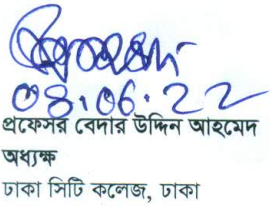 08.06.22
প্রফেসর বেদার উদ্দিন আহমেদ
অধ্যক্ষ
ঢাকা সিটি কলেজ, ঢাকা